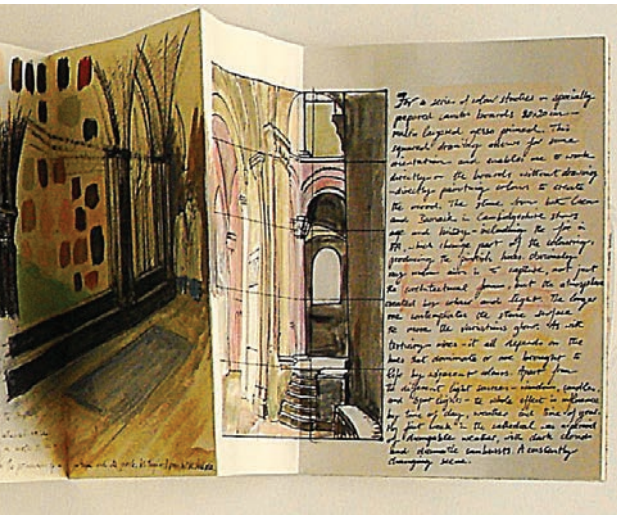 For a series of colour studies on specially
prepared boards 20x20cm —
multi layered gesso primed. This
squared drawing allows for some
orientation and enables me to work
directly on the boards without drawing
– directly painting colours to create
the mood. The stone from both Caen
and Barnack in Cambridgeshire shows
age and history – including the fire in
which change part of the colouring,
producing the pinkish hues. Obviously
my main aim is to capture, not just
the architectural forms, but the atmosphere
created by colour and light. The longer
one contemplates the stone surface
the more the variations glow. As with
tertiary – it all depends on the
hues not dominate or are brought to
life by adjacent colours. Apart from
the different light sources – windows, candles,
and spot lights – the whole effect is influenced
by time of day, weather and time of year.
My first week in the cathedral was a period
of changeable weather, with dark clouds
and dramatic sunbursts. A constantly
changing scene.